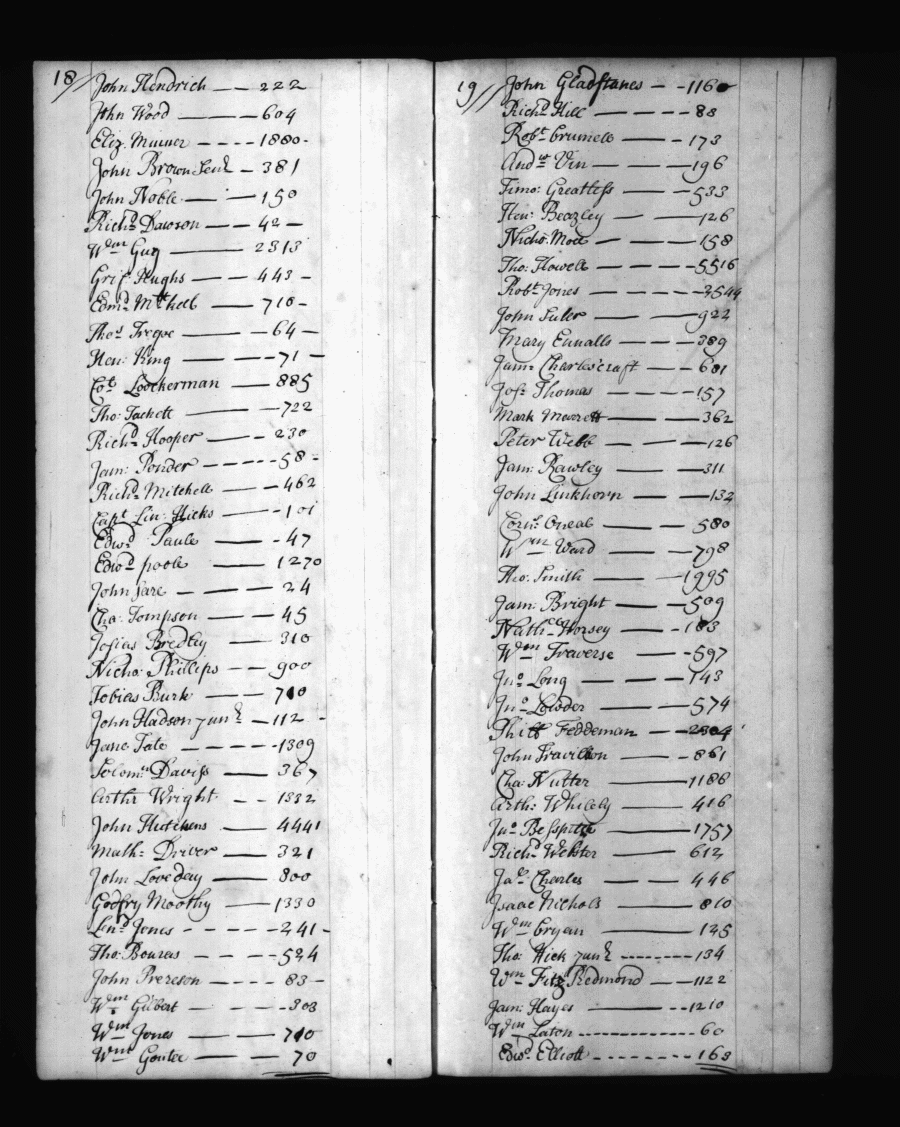 18//
John Hendrich 222
Jhn Wood 604
Eliz. 1880
John Brown Senr 381
John Noble 150
Richd. Dawson 42
Wm Guy 2313
Grif. Hughs 443
Edmd. Mitchell 710
Thos. Tregoe 64
Hen: King 71
Cot. Loockerman 885
Tho: Tackett 722
Richd. Hooper 230
Jam: Ponder 58
Richd. Mitchell 462
Capt. Lin: Hicks 101
Edwd. Paule 47
Edwd. poole 1270
John Sare 24
Cha: Tompson 45
Josias Bredley 310
Nicho: Phillips 900
Tobias Burk 710
John Hadson junr 112
Jane Tate 1309
Solomn. Daviss 367
Arthr Wright 1332
John Hutchens 4441
Math: Driver 321
John Loveday 800
Godfry Moothy 1330
Lend. Jones 241
Tho: Bowres 524
John Prereson 83
Wm Gilbert 303
Wm Jones 710
Wm Goutee 70
19//
John Gladstanes 1160
Richd. Hill 88
Robt. brumell 173
Andw. Vin 196
Timo: Greatless 533
Hen: Beazley 126
Nicho. 158
Tho: Howell 5516
Robt. Jones 3544
John Suler 922
Mary Eunalls 389
Jam: Charlescraft 681
Jos: Thomas 157
Mark Marrett 362
Peter Webb 126
Jam: Rawley 311
John Linkhorn 132
Corns. Oneal 580
Wm Ward 798
Tho: Smith 1995
Jam: Bright 509
Nathl. Horsey 183
Wm Traverse 597
Jno. Long 143
Jno. Lowder 574
Phill Feddeman
John Fravillion 861
Cha: Nutter 1188
Arth: Whitely 416
Jno. Besspitch 1757
Richd. Webster 612
Jas. Charles 446
Isaac Nichols 810
Wm bryan 125
Tho: Hick junr 134
Wm Fitz Redmond 1122
Jam: Hayes 1210
Wm Laton 60
Edwd. Elliott 168